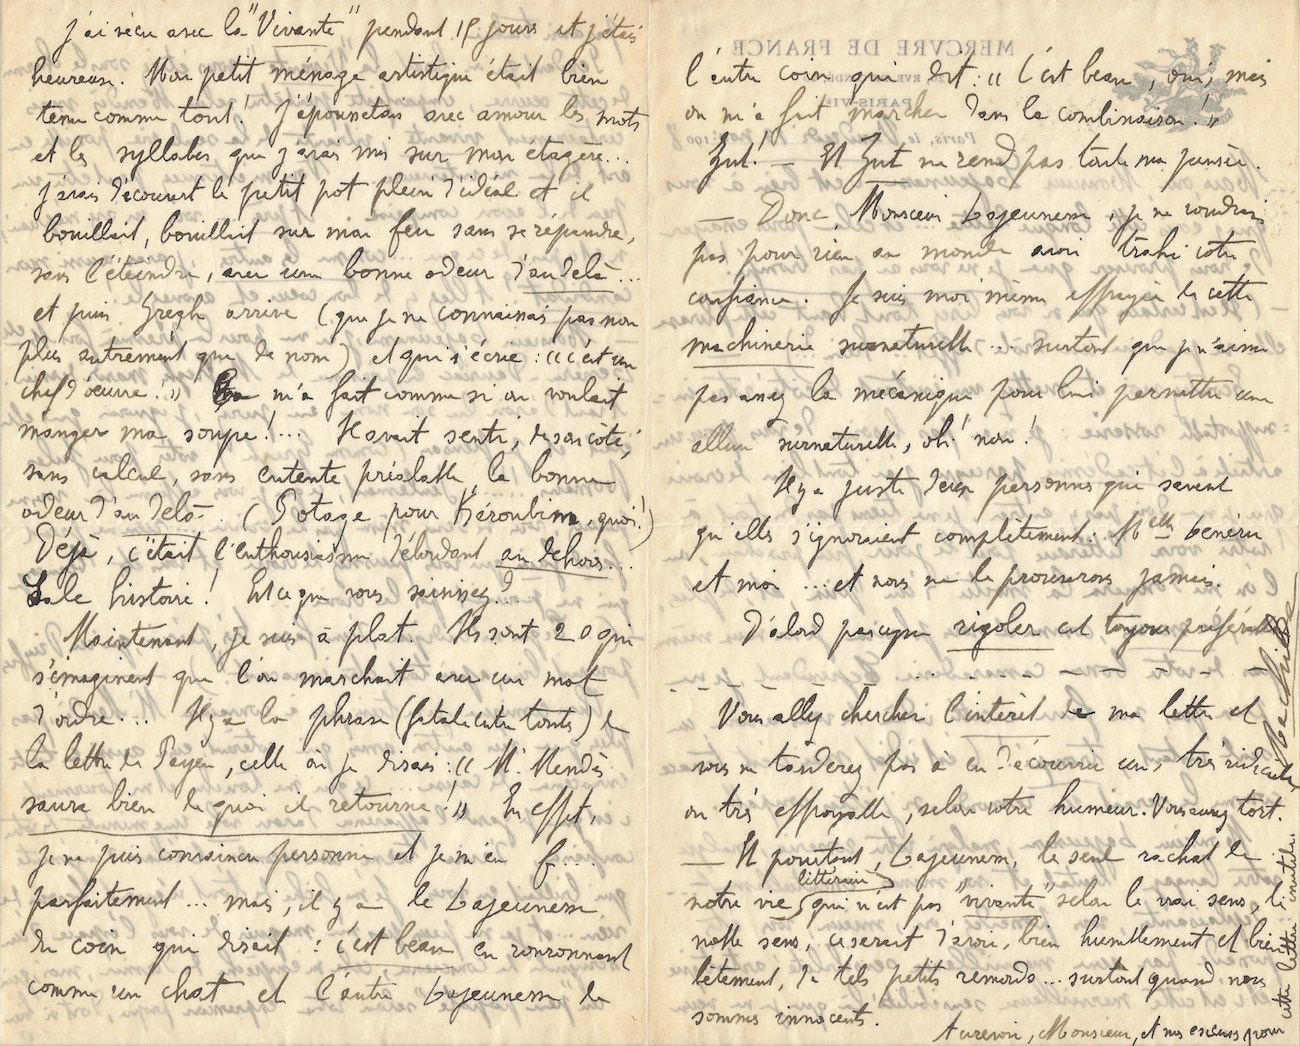 j'ai vécu avec la "Vivante" pendant 15 jours et j'étais
heureuse. Mon petit ménage artistique était bien
tenu comme tout! J'époussetais avec amour les mots
et les syllabes que j'avais mis sur mon étagère...
j'avais découvert le petit pot plein d'idéal et il
bouillait, bouillait sur mon feu sans se répandre,
sans l'éteindre, avec une bonne odeur d'au delà...
et puis Gregh arrive (que je ne connaissais pas non
plus autrement que de nom) et qui s'écrie: "c'est un
chef d'œuvre!" m'a fait comme si on voulait
manger ma soupe!... Il avait senti, de son côté,
sans calcul, sans entente préalable, la bonne
odeur d'au delà. (Potage pour Kéroubim, quoi!)
Déjà, c'était l'enthousiasme débordant au dehors...
Sale histoire! Est ce que vous saisissez?
Maintenant, je suis à plat. Ils sont 20 qui
s'imaginent que l'on marchait avec un mot
d'ordre... Il y a la phrase (fatale entre toutes) de
la lettre de Payen, celle où je disais: "M. Mendès
saura bien de quoi il retourne!" En effet,
je ne puis convaincre personne et je m'en f...
parfaitement... mais, il y a le Lajeunesse
du coin qui disait: c'est beau en ronronnant
comme un chat et l'autre Lajeunesse de
l'autre coin qui dit: "C'est beau, oui, mais
on m'a fait marcher dans la combinaison!"
Zut! — Et Zut ne rend pas toute ma pensée.
— Donc Monsieur Lajeunesse, je ne voudrais
pas pour rien au monde avoir trahi votre
confiance. Je suis moi même effrayée de cette
machinerie surnaturelle... surtout que je n'aime
pas assez la mécanique pour lui permettre une
allure surnaturelle, oh! non!
Il y a juste deux personnes qui savent
qu'elles s'ignoraient complètement: Melle Lenéru
et moi... et nous ne le prouverons jamais.
D'abord parceque rigoler est toujours préférable
Vous allez chercher l'intérêt de ma lettre et
vous ne tarderez pas à en découvrir un, très ridicule
ou très effroyable, selon votre humeur. Vous aurez tort.
— Et pourtant, Lajeunesse, le seul rachat de
notre vie littéraire, qui n'est pas "vivante" selon le vrai sens, le
noble sens, ce serait d'avoir, bien humblement et bien
bêtement, de tels petits remords... surtout quand nous
sommes innocents.
Au revoir, Monsieur, et mes excuses pour
cette lettre inutile.
Rachilde
MERCVRE DE FRANCE
PARIS-VIe
Paris, le